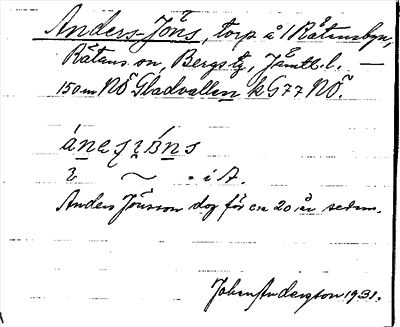 Anders-Jöns, torp å 1 Rätansbyn,
Rätans sn, Bergs tg, Jämtl. l. —
150 m NÖ Gladvallen k G77 NÖ.
Anders Jönsson dog för ca 20 år sedan.
Johan Andersson 1931.